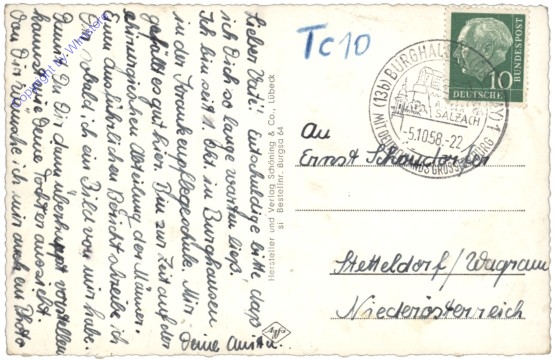 Lieber Vati! Entschuldige bitte, dass
ich Dich so lange warten ließ.
Ich bin seit 1. Okt. in Burghausen
in der Krankenpflegeschule. Mir
gefällt es gut hier. Bin zur Zeit auf der
chirurgischen Abteilung der Männer.
Einen ausführlichen Bericht schreibe ich
Dir, sobald ich ein Bild von mir habe.
Damit Du Dir überhaupt vorstellen
kannst wie deine Tochter aussieht.
Von Dir wünsche ich mir auch ein Photo
Deine Anita.
Hersteller und Verlag Schöning & Co., Lübeck
Bestellnr. Burgsa 64
Agfa
Tc10
(13b) BURGHAUSEN
SALZACH
-5.10.58.-22
10
DEUTSCHE
BUNDESPOST
An
Ernst
Stetteldorf/Wagram
Niederösterreich